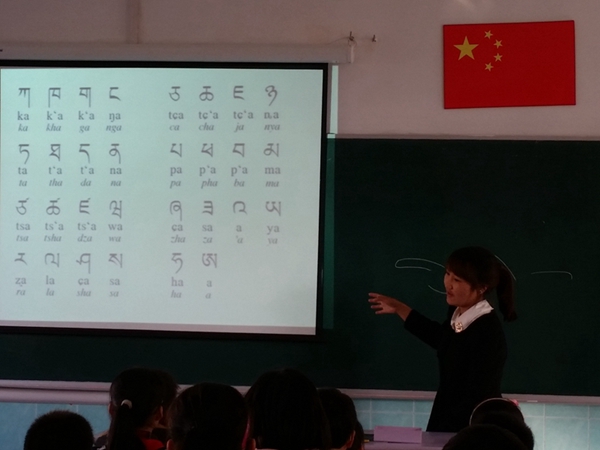 ཀ ཁ ག ང ཅ ཆ ཇ ཉ
ka k'a k'a ŋa tɕa tɕ'a tɕ'a ȵa
ka kha ga nga ca cha ja nya
ཏ ཐ ད ན པ ཕ བ མ
ta t'a t'a na pa p'a p'a ma
ta tha da na pa pha ba ma
ཙ ཚ ཛ ཝ ཞ ཟ འ ཡ
tsa ts'a ts'a wa ɕa sa a ya
tsa tsha dza wa zha za 'a ya
ར ལ ཤ ས ཧ ཨ
ʐa la ɕa sa ha a
ra la sha sa ha a